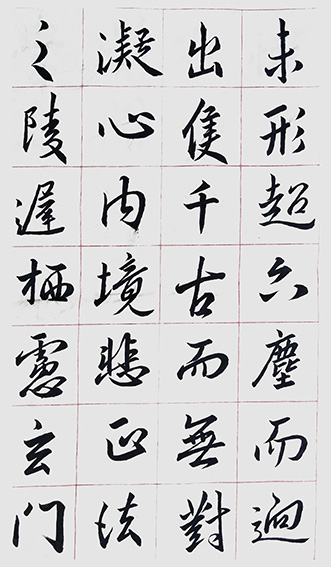 未形超六塵而迥
出隻千古而無對
凝心内境悲正法
之陵遲栖慮玄門